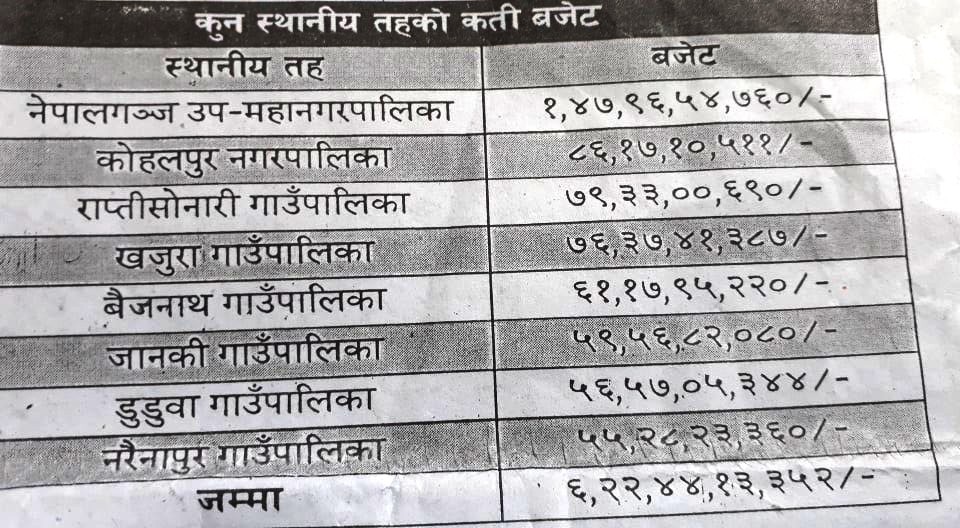 कुन स्थानीय तहको कती बजेट
स्थानीय तह बजेट
नेपालगञ्ज उप-महानगरपालिका १,४७,९६,५४,७६०/-
कोहलपुर नगरपालिका ८६,१७,१०,५११/-
राप्तीसोनारी गाउँपालिका ७९,३३,००,६९०/-
खजुरा गाउँपालिका ७६,३७,४१,३८७/-
बैजनाथ गाउँपालिका ६१,१७,९५,२२०/-
जानकी गाउँपालिका ५९,५६,८२,०८०/-
डुडुवा गाउँपालिका ५६,५७,०५,३४४/-
नरैनापुर गाउँपालिका ५५,२८,२३,३६०/-
जम्मा ६,२२,४४,१३,३५२/-